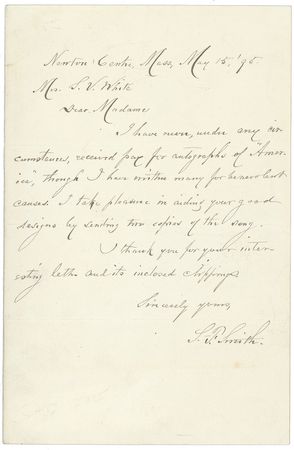 Newton Centre, Mass, May 15. '95.
Mrs. S. V. White
Dear Madame
I have never, under any cir-
cumstances, received pay for autographs of "Amer-
ica", though I have written many for benevolent
causes. I take pleasure in aiding your good
designs by sending two copies of the song.
I thank you for your inter-
esting letter and its inclosed clippings
Sincerely yours,
S. F. Smith.